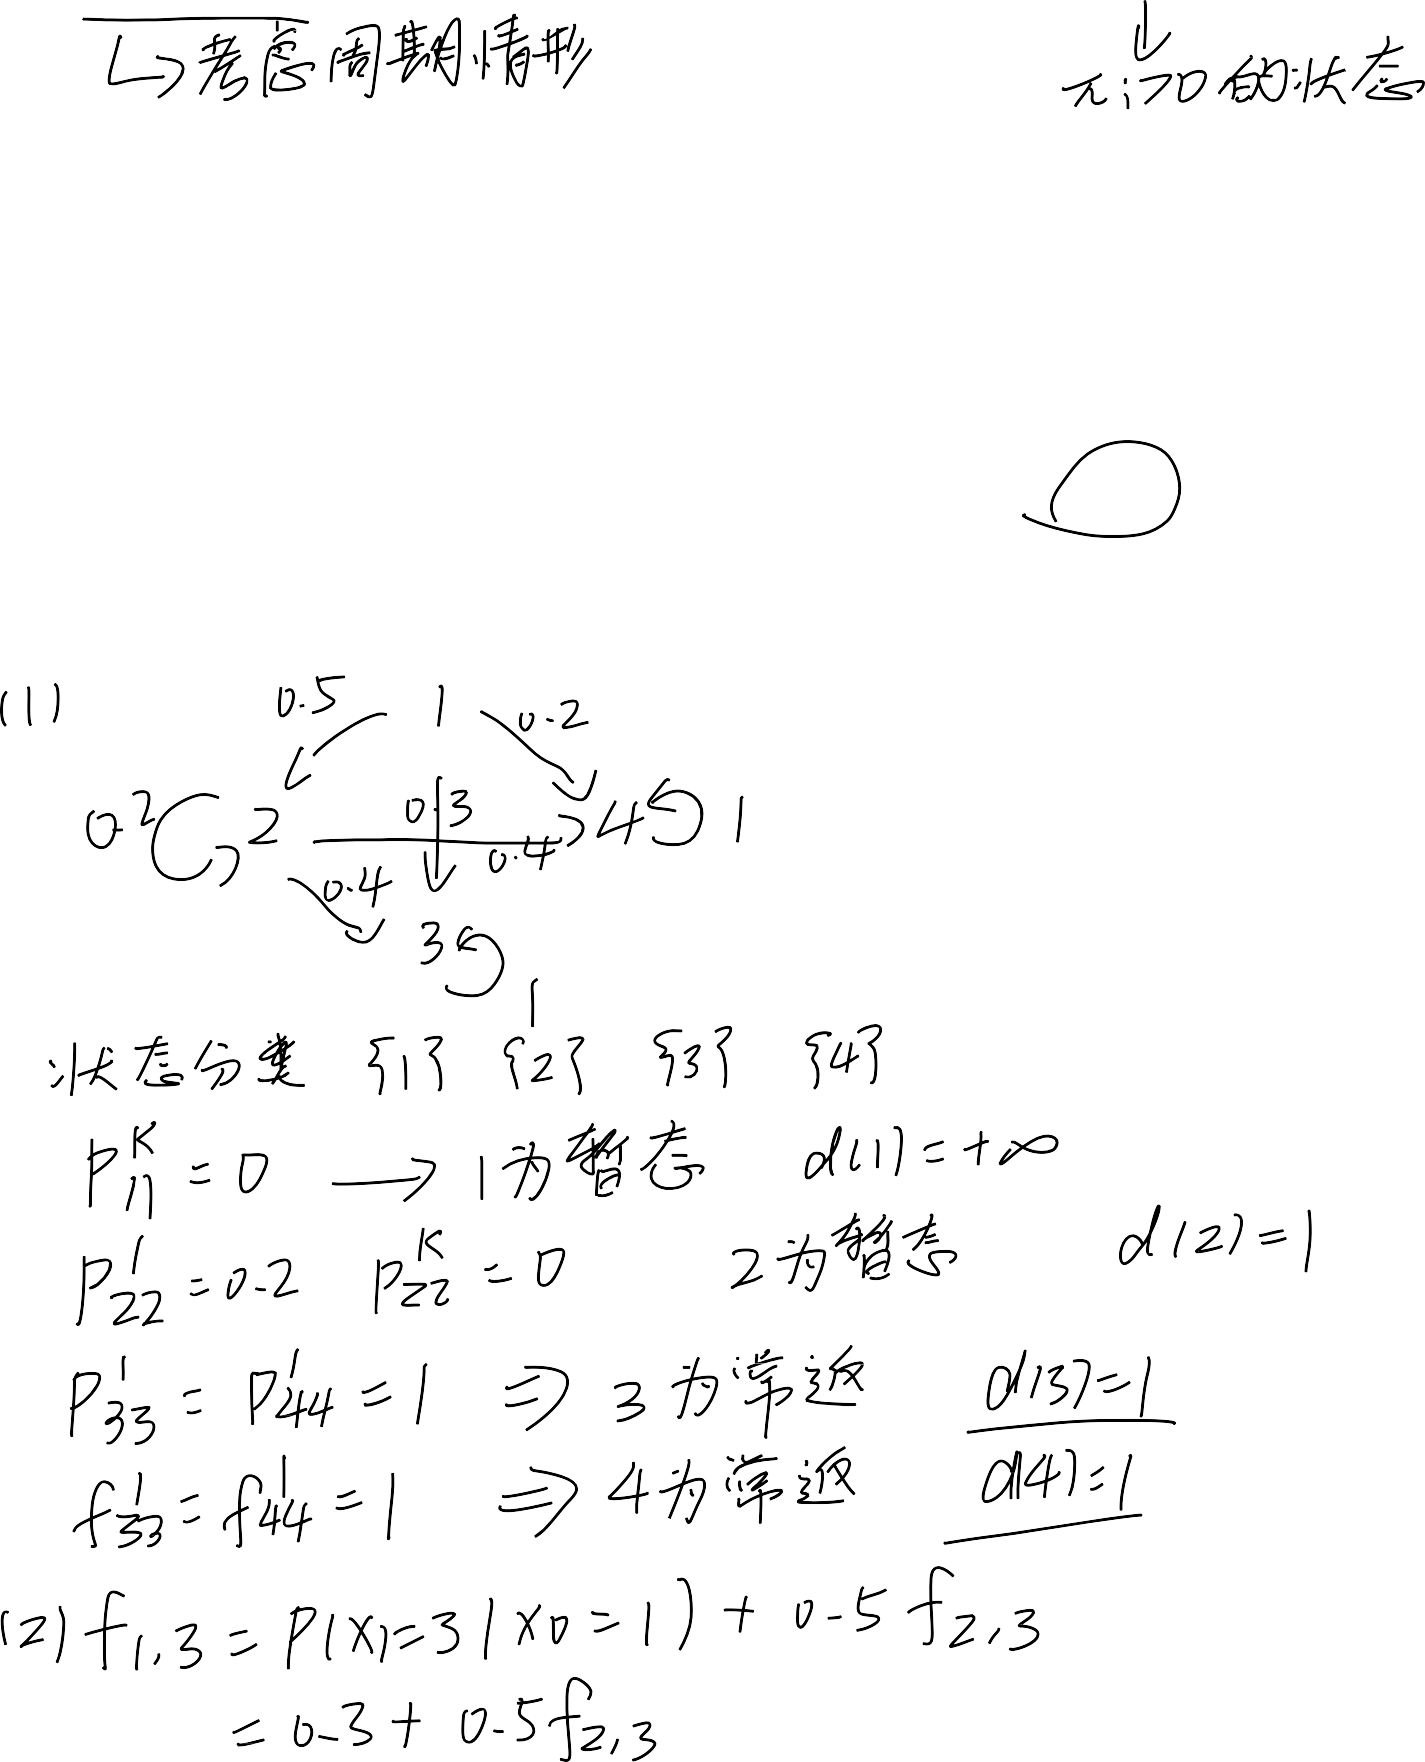 ↳考虑周期情形
↓
πi>0的状态
(1)
0.5 1 0.2
0.2 2 0.3 4 1
0.4 0.4
3
1
状态分类 {1} {2} {3} {4}
P₁₁ᴷ = 0 → 1为暂态 d(1)=+∞
P₂₂¹ = 0.2 P₂₂ᴷ = 0 2为暂态 d(2)=1
P₃₃¹ = P₄₄¹ = 1 ⇒ 3为常返 d(3)=1
f₃₃¹ = f₄₄¹ = 1 ⇒ 4为常返 d(4)=1
(2) f₁,₃ = P(X₁=3|X₀=1) + 0.5 f₂,₃
= 0.3 + 0.5f₂,₃